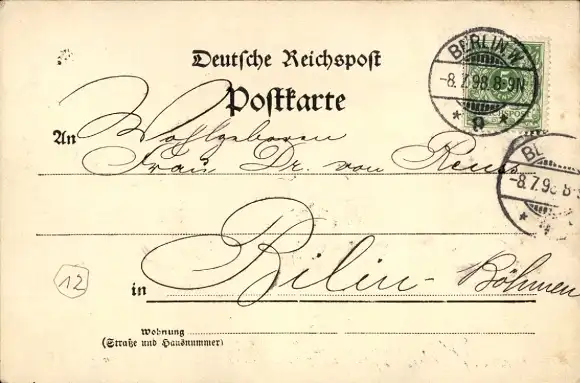 Deutsche Reichspost
Postkarte
BERLIN W.
-8.7.98.8-9N
* p *
5
BE
-8.7.98 8-9
An Wohlgeboren
Frau Dr. von Reuss
in Bilin - Böhmen
12
Wohnung
(Straße und Hausnummer)